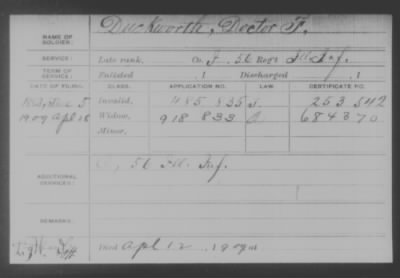 NAME OF SOLDIER: Duckworth, Doctor F.
SERVICE: Late rank, Co. I, 56 Reg't Ill Inf.
TERM OF SERVICE: Enlisted , 1 Discharged , 1
DATE OF FILING. CLASS. APPLICATION NO. LAW. CERTIFICATE NO.
Invalid, 485 835 253 542
1909 Apl 28 Widow, 918 833 684 370
Minor,
ADDITIONAL SERVICES: 56 Ill. Inf.
REMARKS:
Died Apl 12 1909